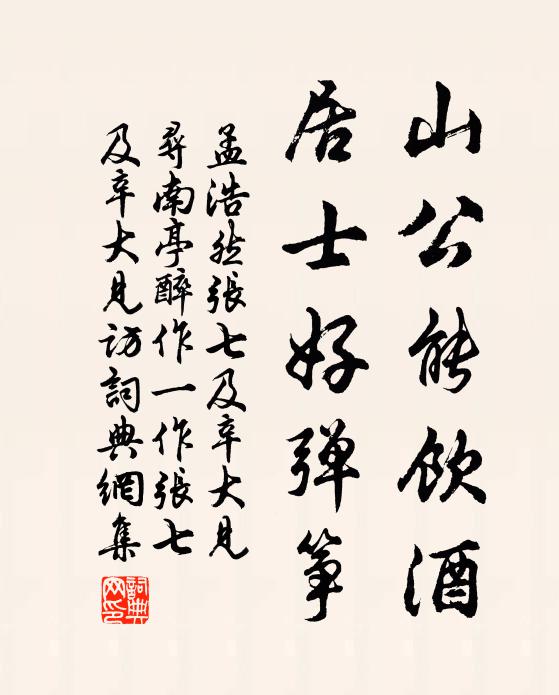 山公能飲酒
居士好弹筝
孟浩然張七及辛大見
尋南亭醉作一作張七
及辛大見访詞典網集
詞典網印